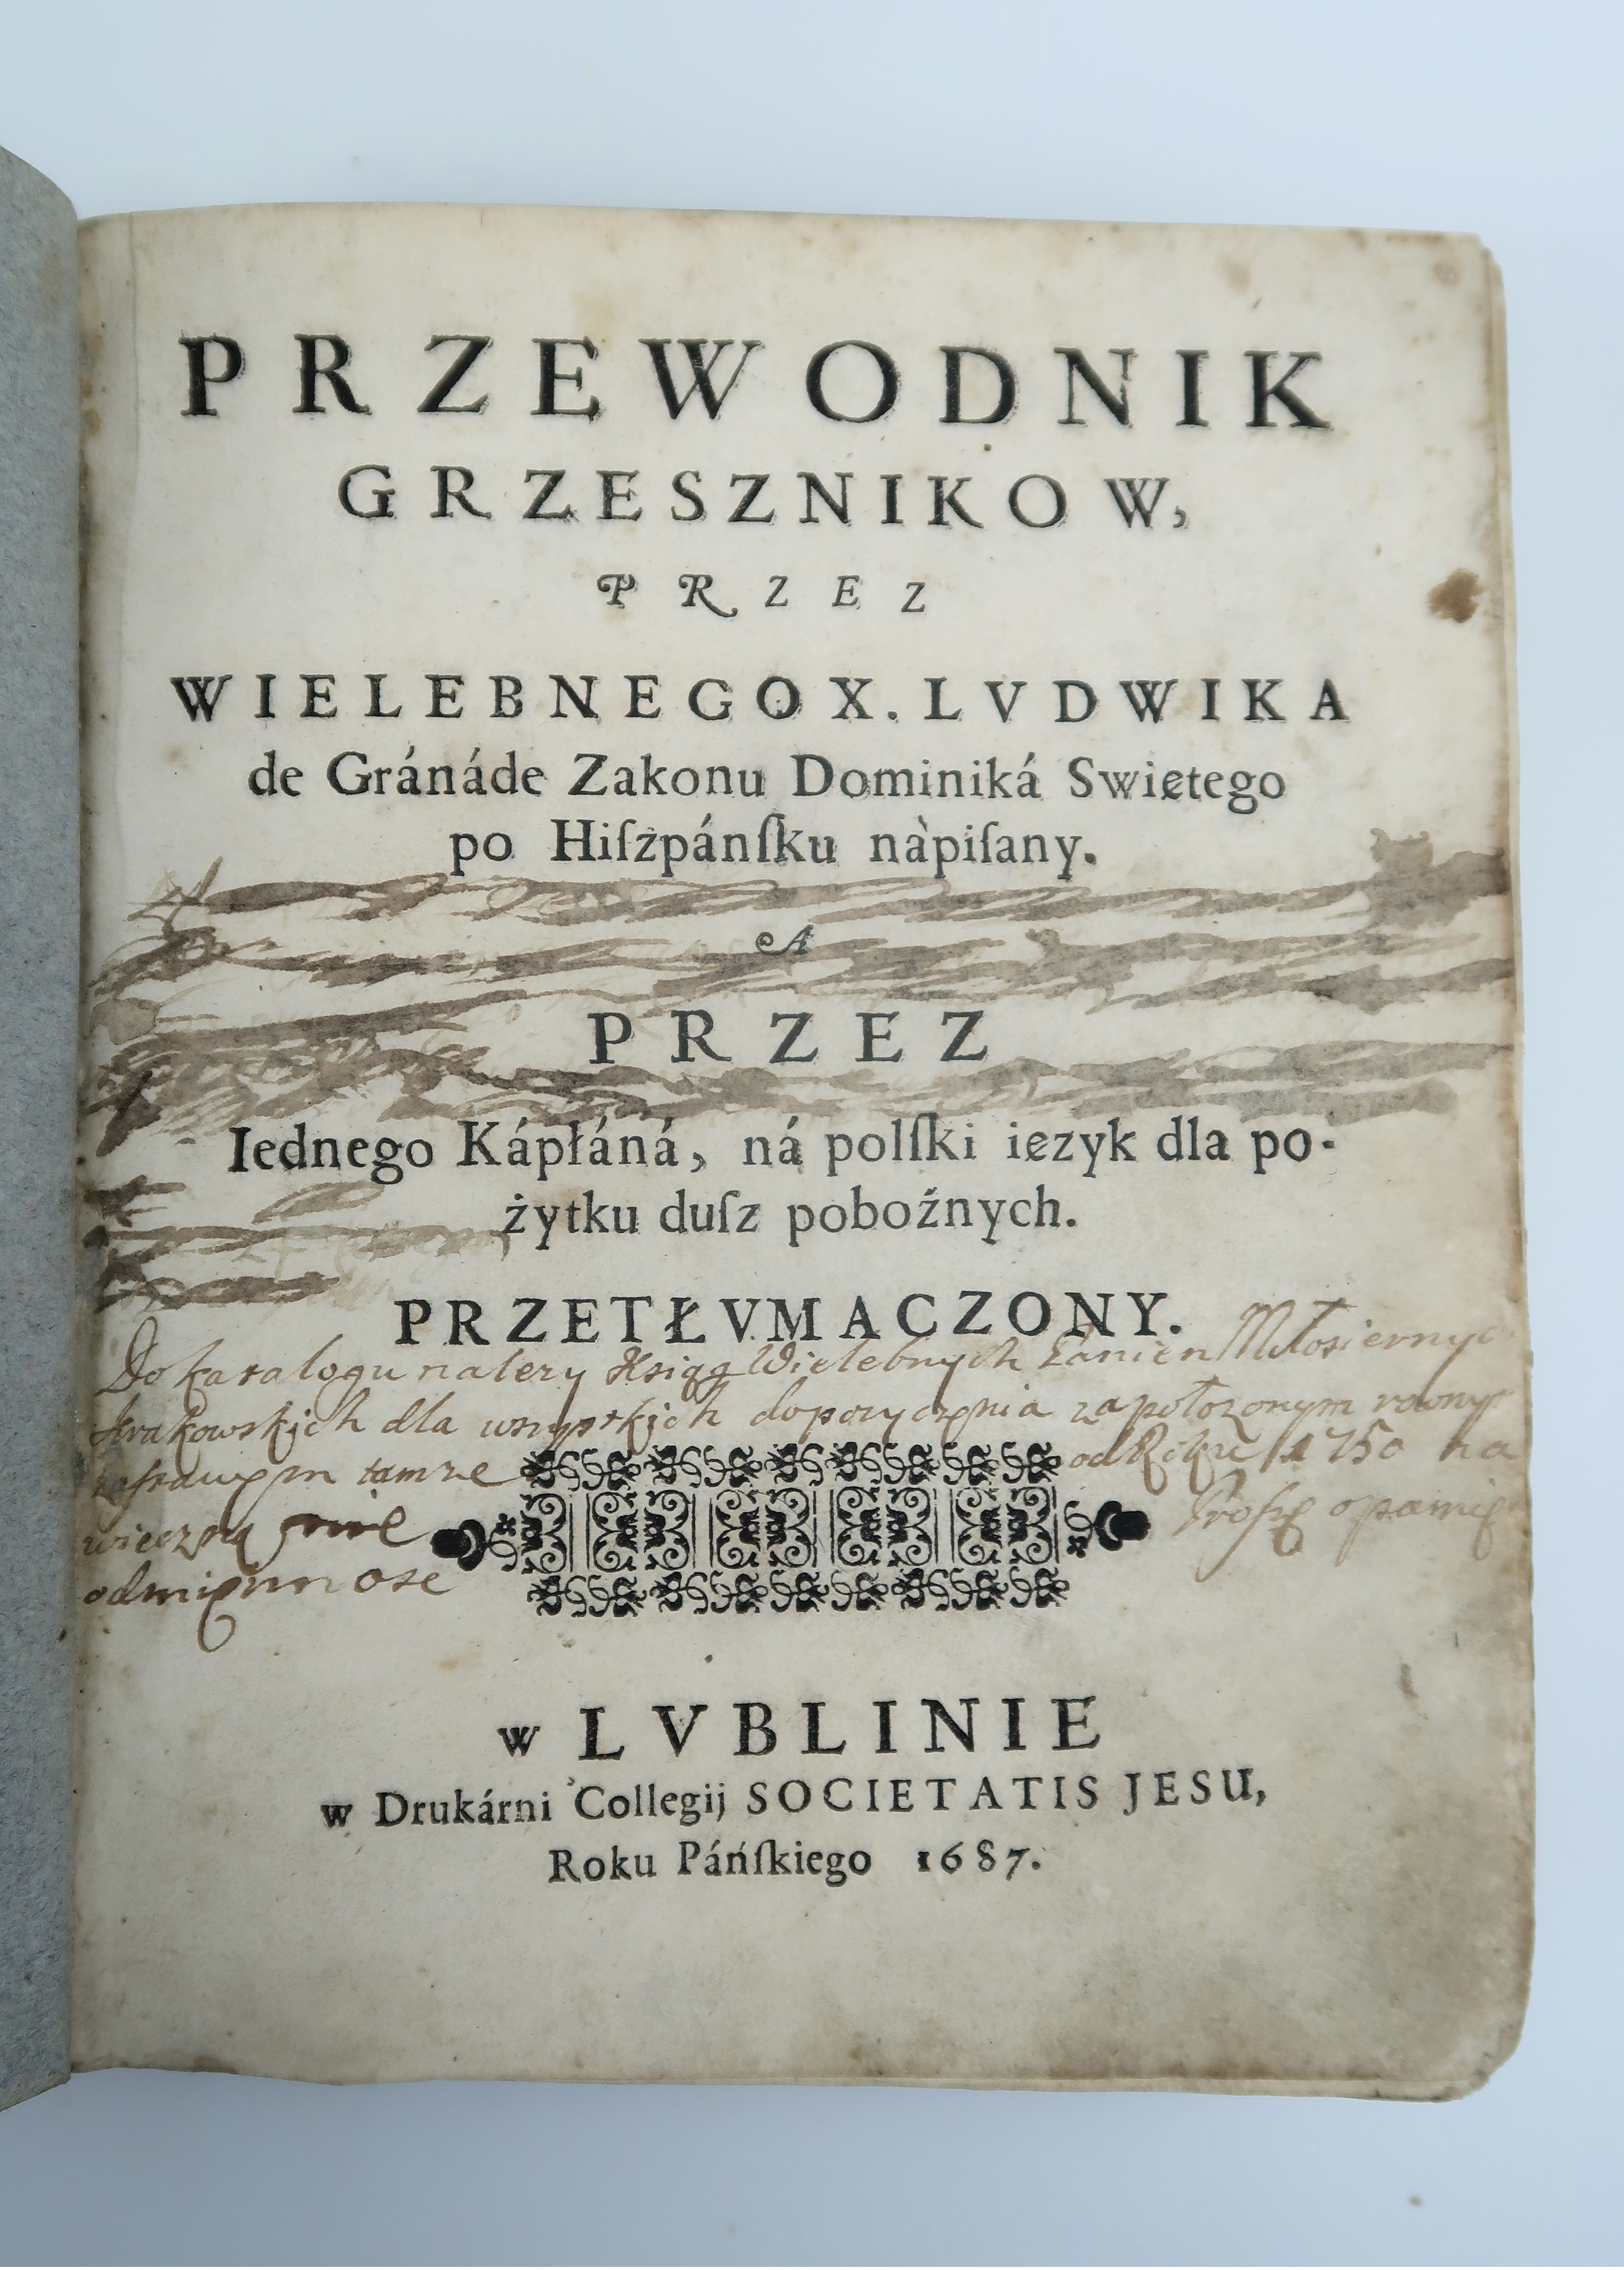 PRZEWODNIK
GRZESZNIKOW,
PRZEZ
WIELEBNEGO X. LVDWIKA
de Gránáde Zakonu Dominiká Swiętego
po Hiſzpánſku nàpiſany.
A
PRZEZ
Iednego Kápłáná, ná polſki ięzyk dla po-
żytku duſz poboźnych.
PRZETŁVMACZONY.
Do katalogu nalezy Xsiąg Wielebnych Panien Miłosiernych
krakowskich dla wszystkich
tamze od Roku 1750 na
wieczną Proszę
w LVBLINIE
w Drukárni Collegij SOCIETATIS JESU,
Roku Páńſkiego 1687.